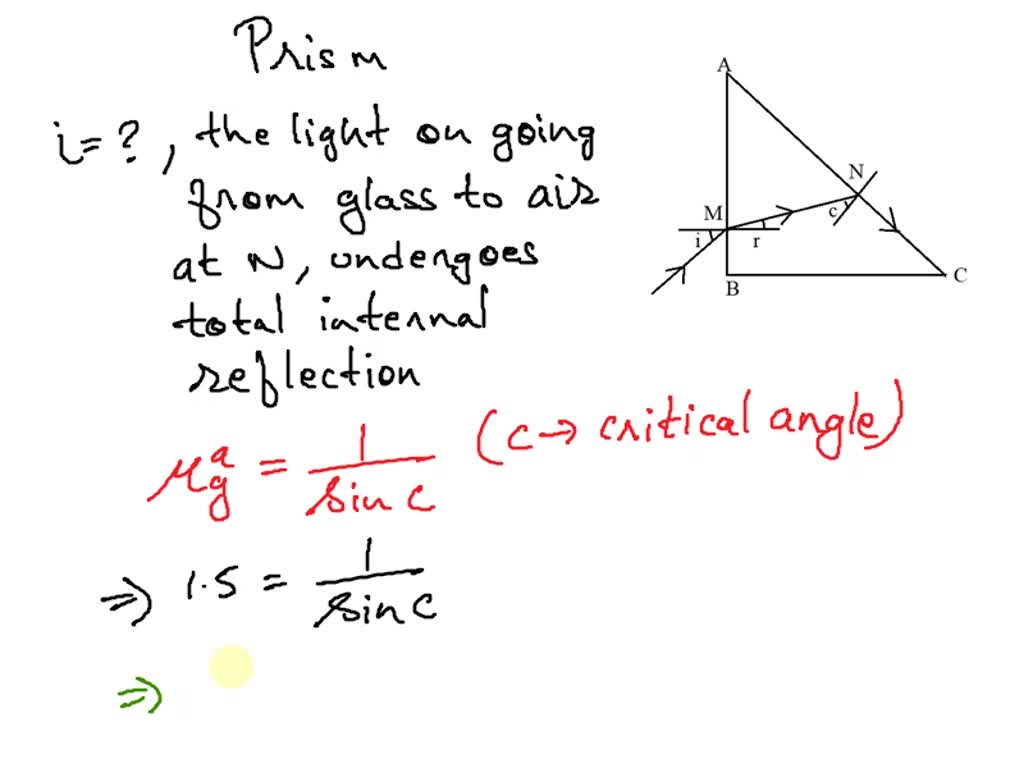 Prism
i = ? , the light on going
from glass to air
at N, undergoes
total internal
reflection
A
N
M
c
i
r
B
C
μ^a_g = 1/sin c (c → critical angle)
⇒ 1.5 = 1/sin c
⇒